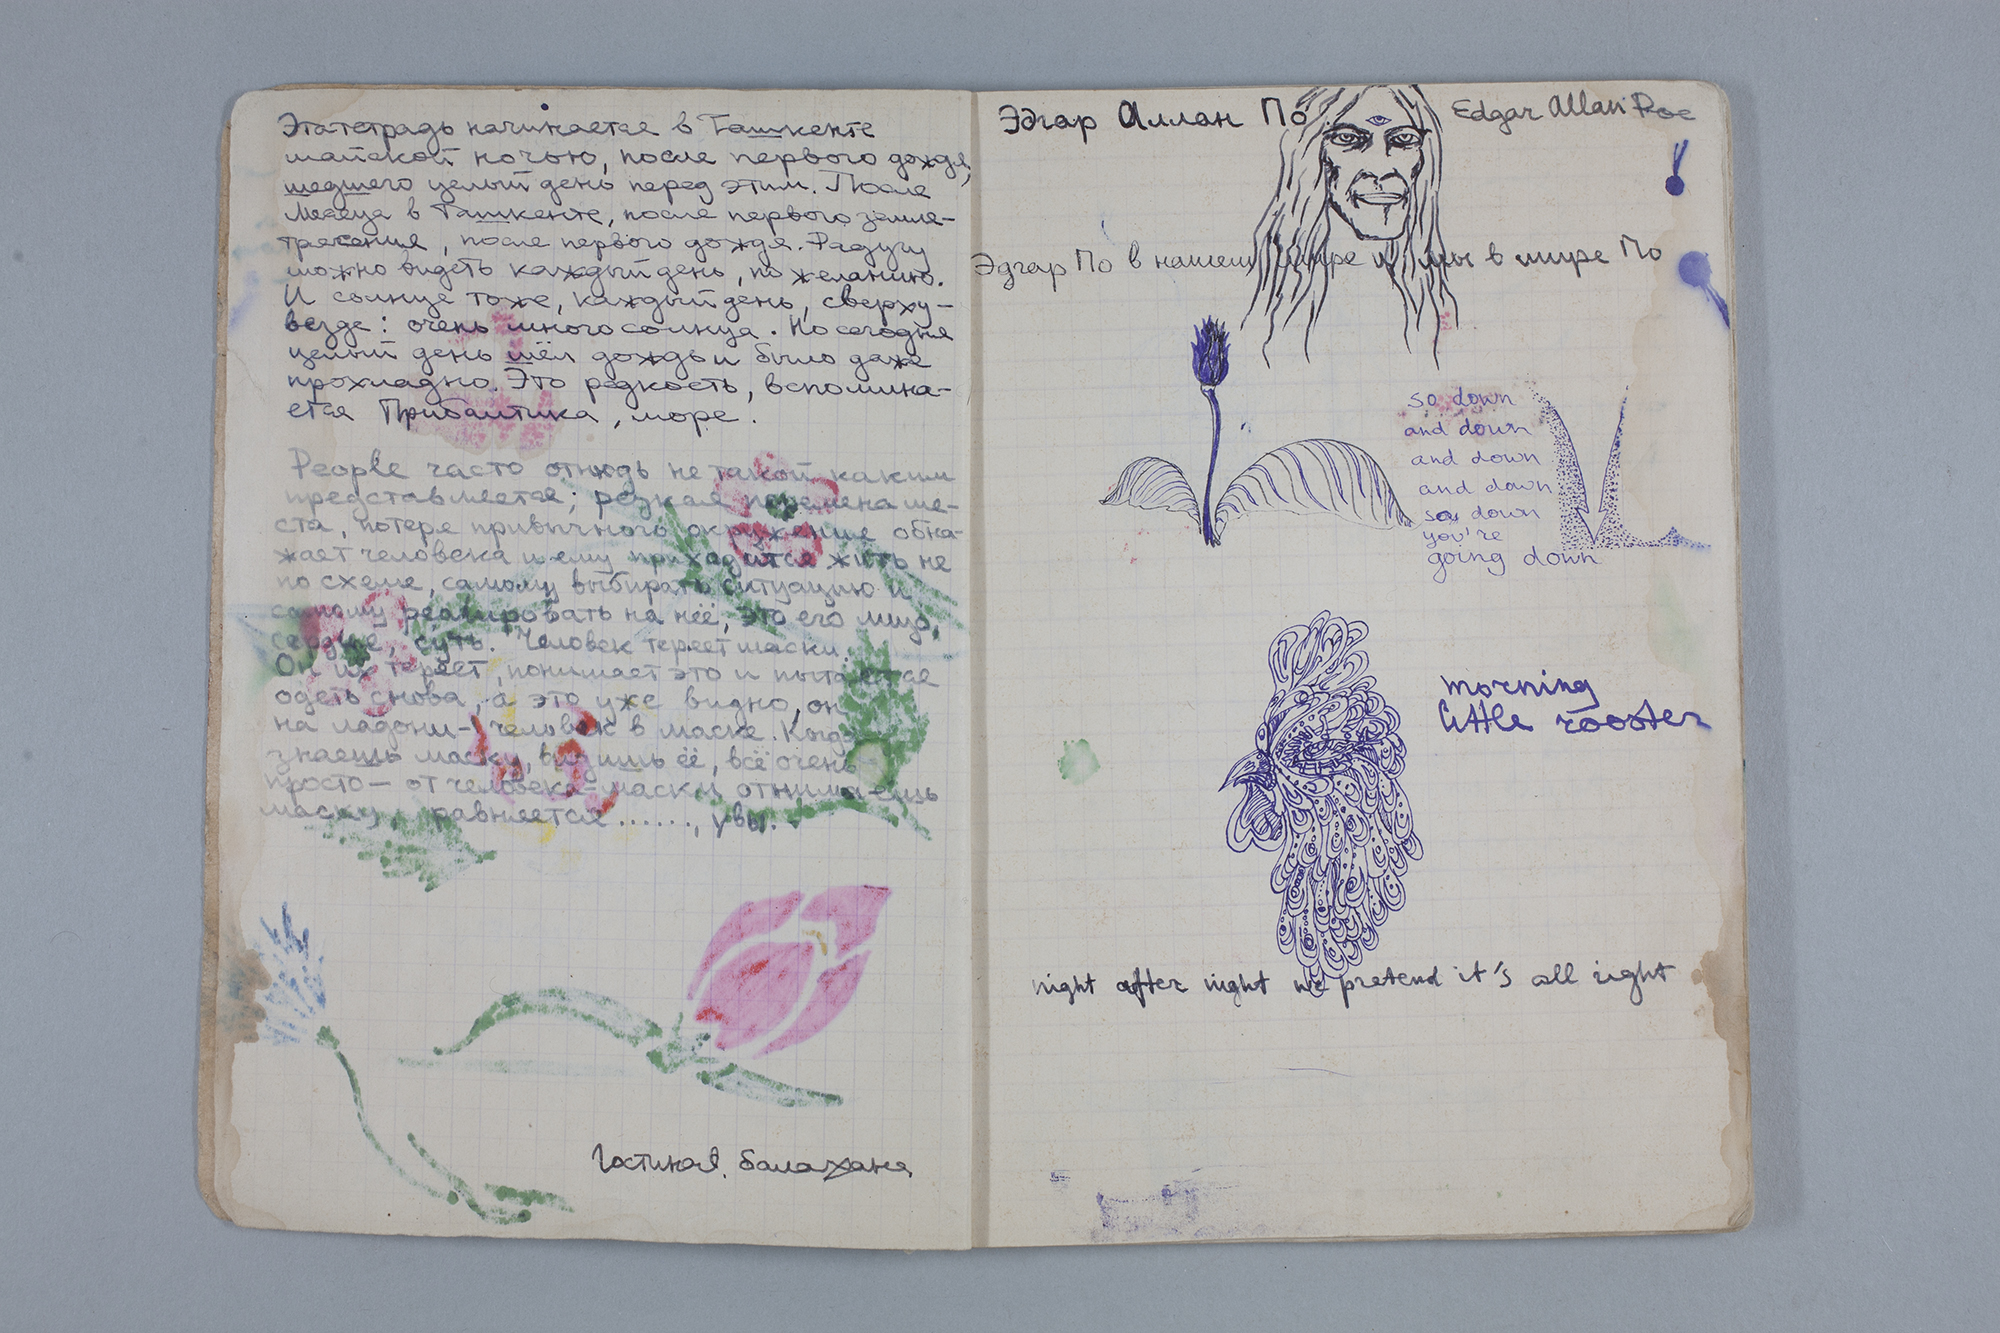 Эта тетрадь начинается в Ташкенте
майской ночью, после первого дождя,
шедшего целый день перед этим. После
месяца в Ташкенте, после первого земле-
трясения, после первого дождя. Радугу
можно видеть каждый день, по желанию.
И солнце тоже, каждый день, сверху-
везде: очень много солнца. Но сегодня
целый день шёл дождь и было даже
прохладно. Это редкость, вспомина-
ется Прибалтика, море.
People часто отнюдь не такой каким
представляется; резкая перемена ме-
ста, потеря привычного окружения обна-
жает человека и ему приходится жить не
по схеме, самому выбирать ситуацию и
самому реагировать на неё, это его лицо,
сердце, суть. Человек теряет маски.
Он их теряет, понимает это и пытается
одеть снова, а это уже видно, он
на ладони - человек в маске. Когда
знаешь маску, видишь её, всё очень
просто - от человека-маски отнимаешь
маску, равняется ......, увы.
Гостиная, балахана
Эдгар Аллан По
Edgar Allan Poe
Эдгар По в нашем мире и мы в мире По
so down
and down
and down
and down
so down
you're
going down
morning
little rooster
night after night we pretend it's all right